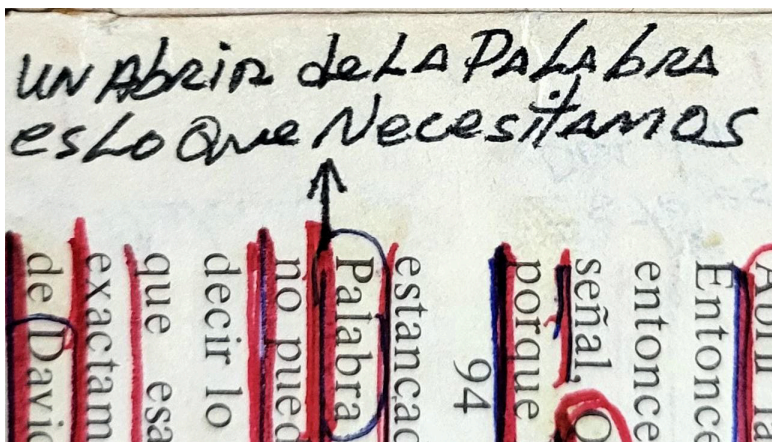 UN AbRiR de LA PALAbRA
es Lo Que NecesitAMOS
Entonc
entonce
señal, O
porque
94
estancad
Palabra
no pued
decir lo
que esa
exactam
de David